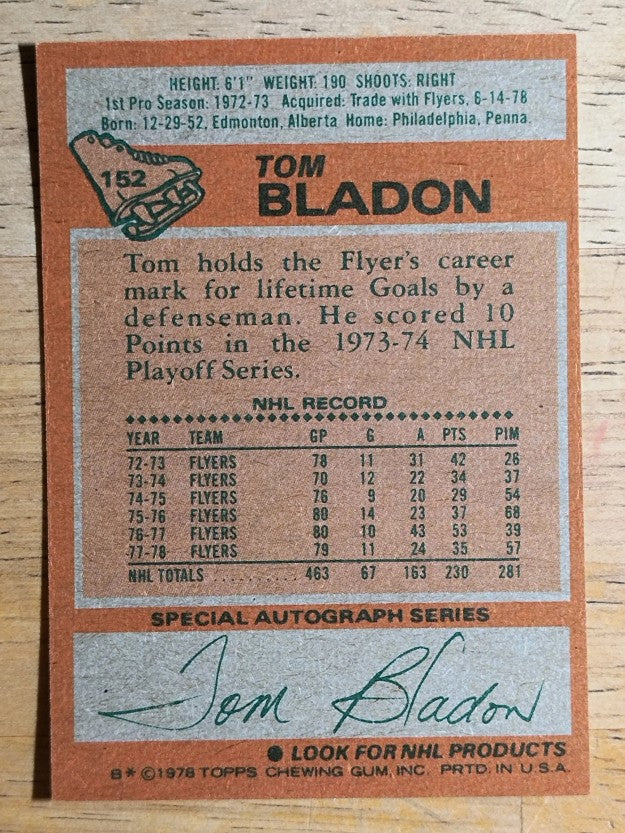 HEIGHT: 6'1" WEIGHT: 190 SHOOTS: RIGHT
1st Pro Season: 1972-73 Acquired: Trade with Flyers, 6-14-78
Born: 12-29-52, Edmonton, Alberta Home: Philadelphia, Penna.
152
TOM
BLADON
Tom holds the Flyer's career
mark for lifetime Goals by a
defenseman. He scored 10
Points in the 1973-74 NHL
Playoff Series.
NHL RECORD
YEAR TEAM GP G A PTS PIM
72-73 FLYERS 78 11 31 42 26
73-74 FLYERS 70 12 22 34 37
74-75 FLYERS 76 9 20 29 54
75-76 FLYERS 80 14 23 37 68
76-77 FLYERS 80 10 43 53 39
77-78 FLYERS 79 11 24 35 57
NHL TOTALS .......... 463 67 163 230 281
SPECIAL AUTOGRAPH SERIES
Tom Bladon
● LOOK FOR NHL PRODUCTS
B* ©1978 TOPPS CHEWING GUM, INC. PRTD. IN U.S.A.